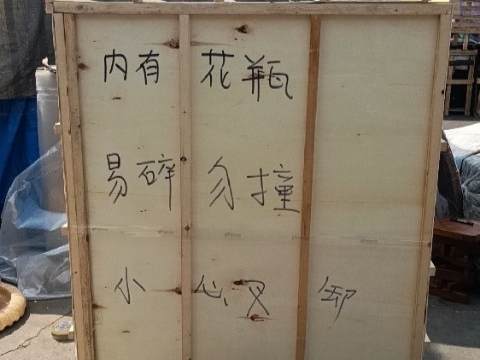 内有花瓶
易碎勿撞
小心叉卸